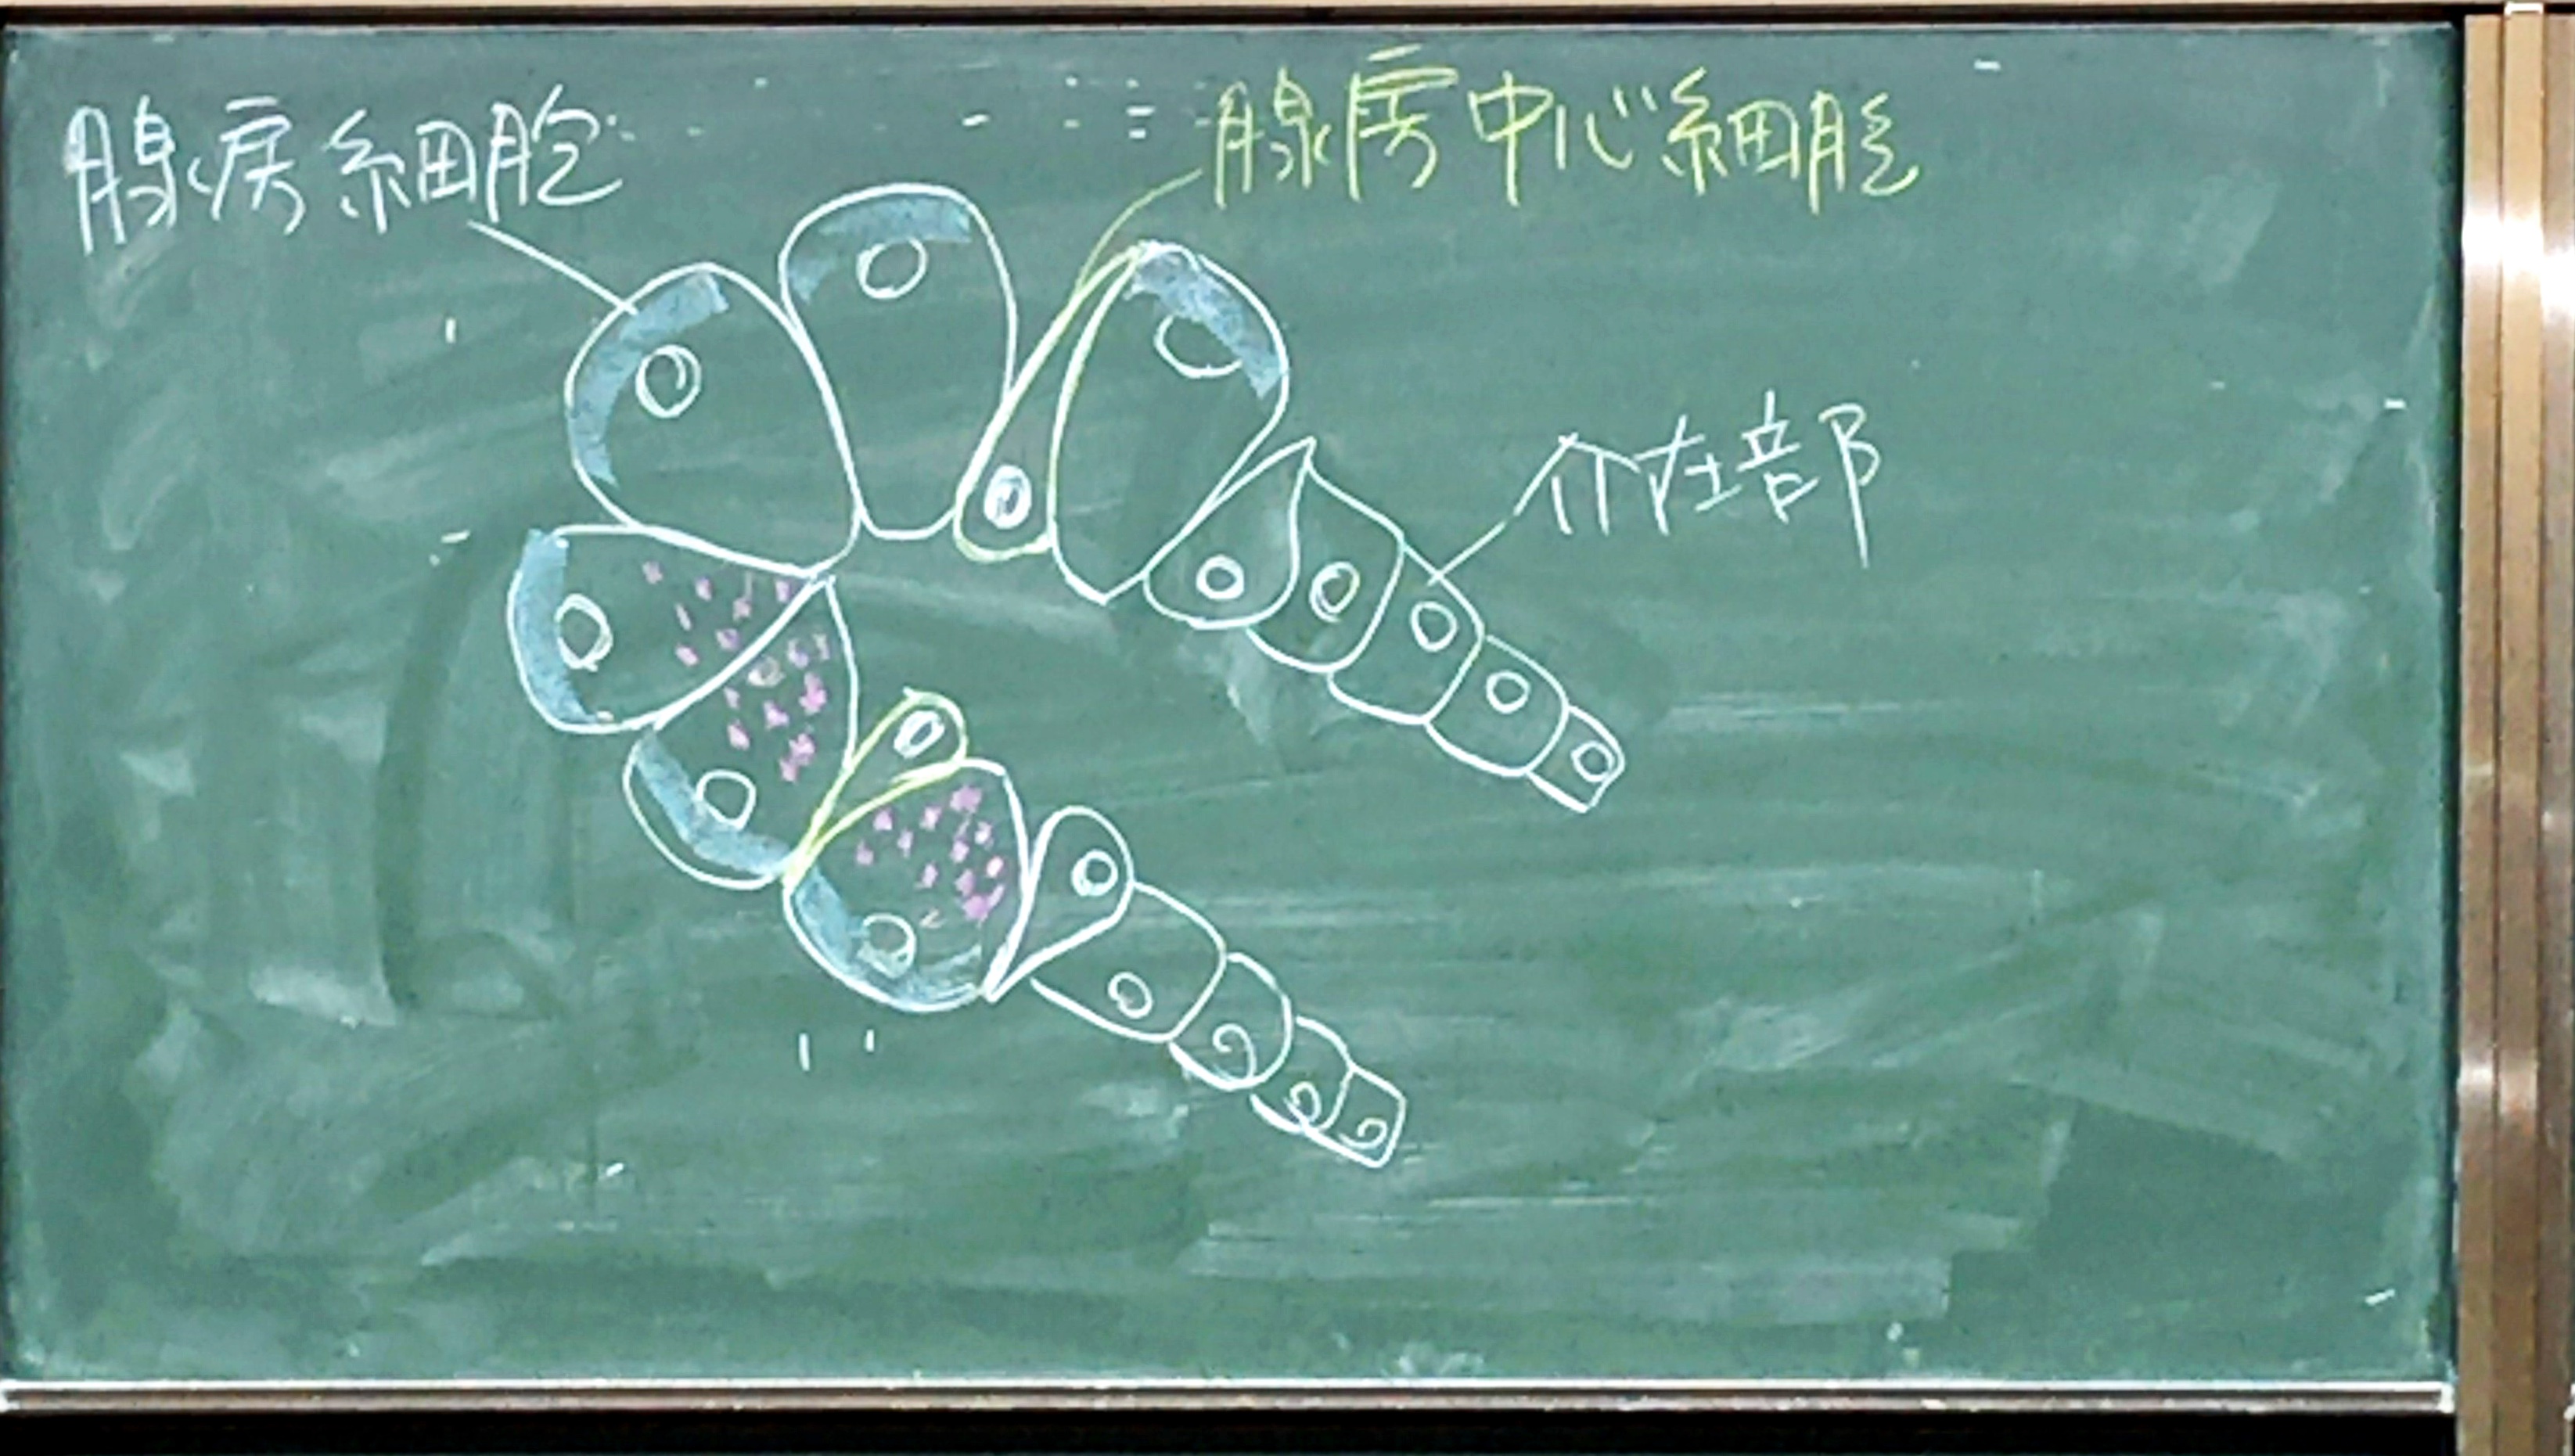 腺房細胞
腺房中心細胞
介在部